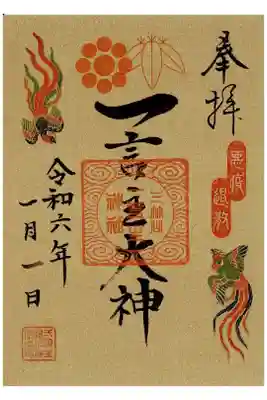 奉拝
悪疫
退散
一言主大神
令和六年
一月一日